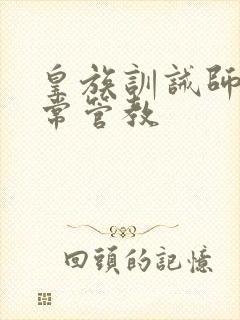 皇族訓誡師
常管教
回頭的記憶